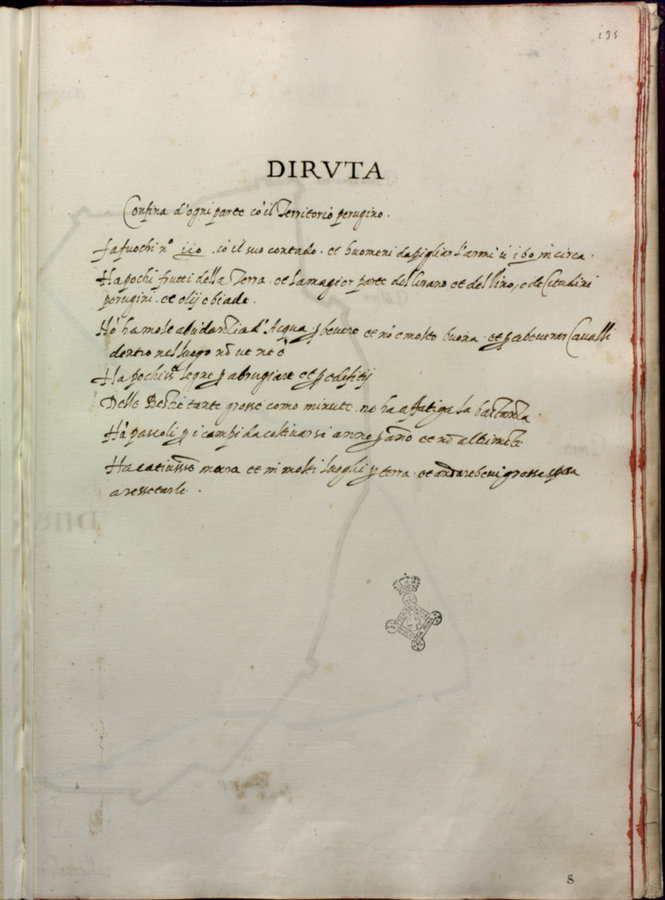 135
DIRVTA
Confina d'ogni parte cō il Territorio perugino.
Fa fuochi n.º 110. cō il suo contado. et huomeni da pigliar l'armi n 160 in circa.
Ha pochi frutti della Terra. et la magior parte del Grano et del Vino, e de Cittadini
perugini. et olij e biade.
Hà d'Acqua p bevere et nō è molto buona. et p abeverar Cavalli
dentro nel luogo nō ve ne è
Ha pochi legne p abrugiare et p edifitij
Delle Bestie tante grosse como minute. na ha a fatiga la bastanza
Hà pascoli p i campi da coltivarsi anno p āno et nō altimēte
Ha catiuissē mura et in molti luoghi p terra. et grossa spesa
a ressetarle.
8